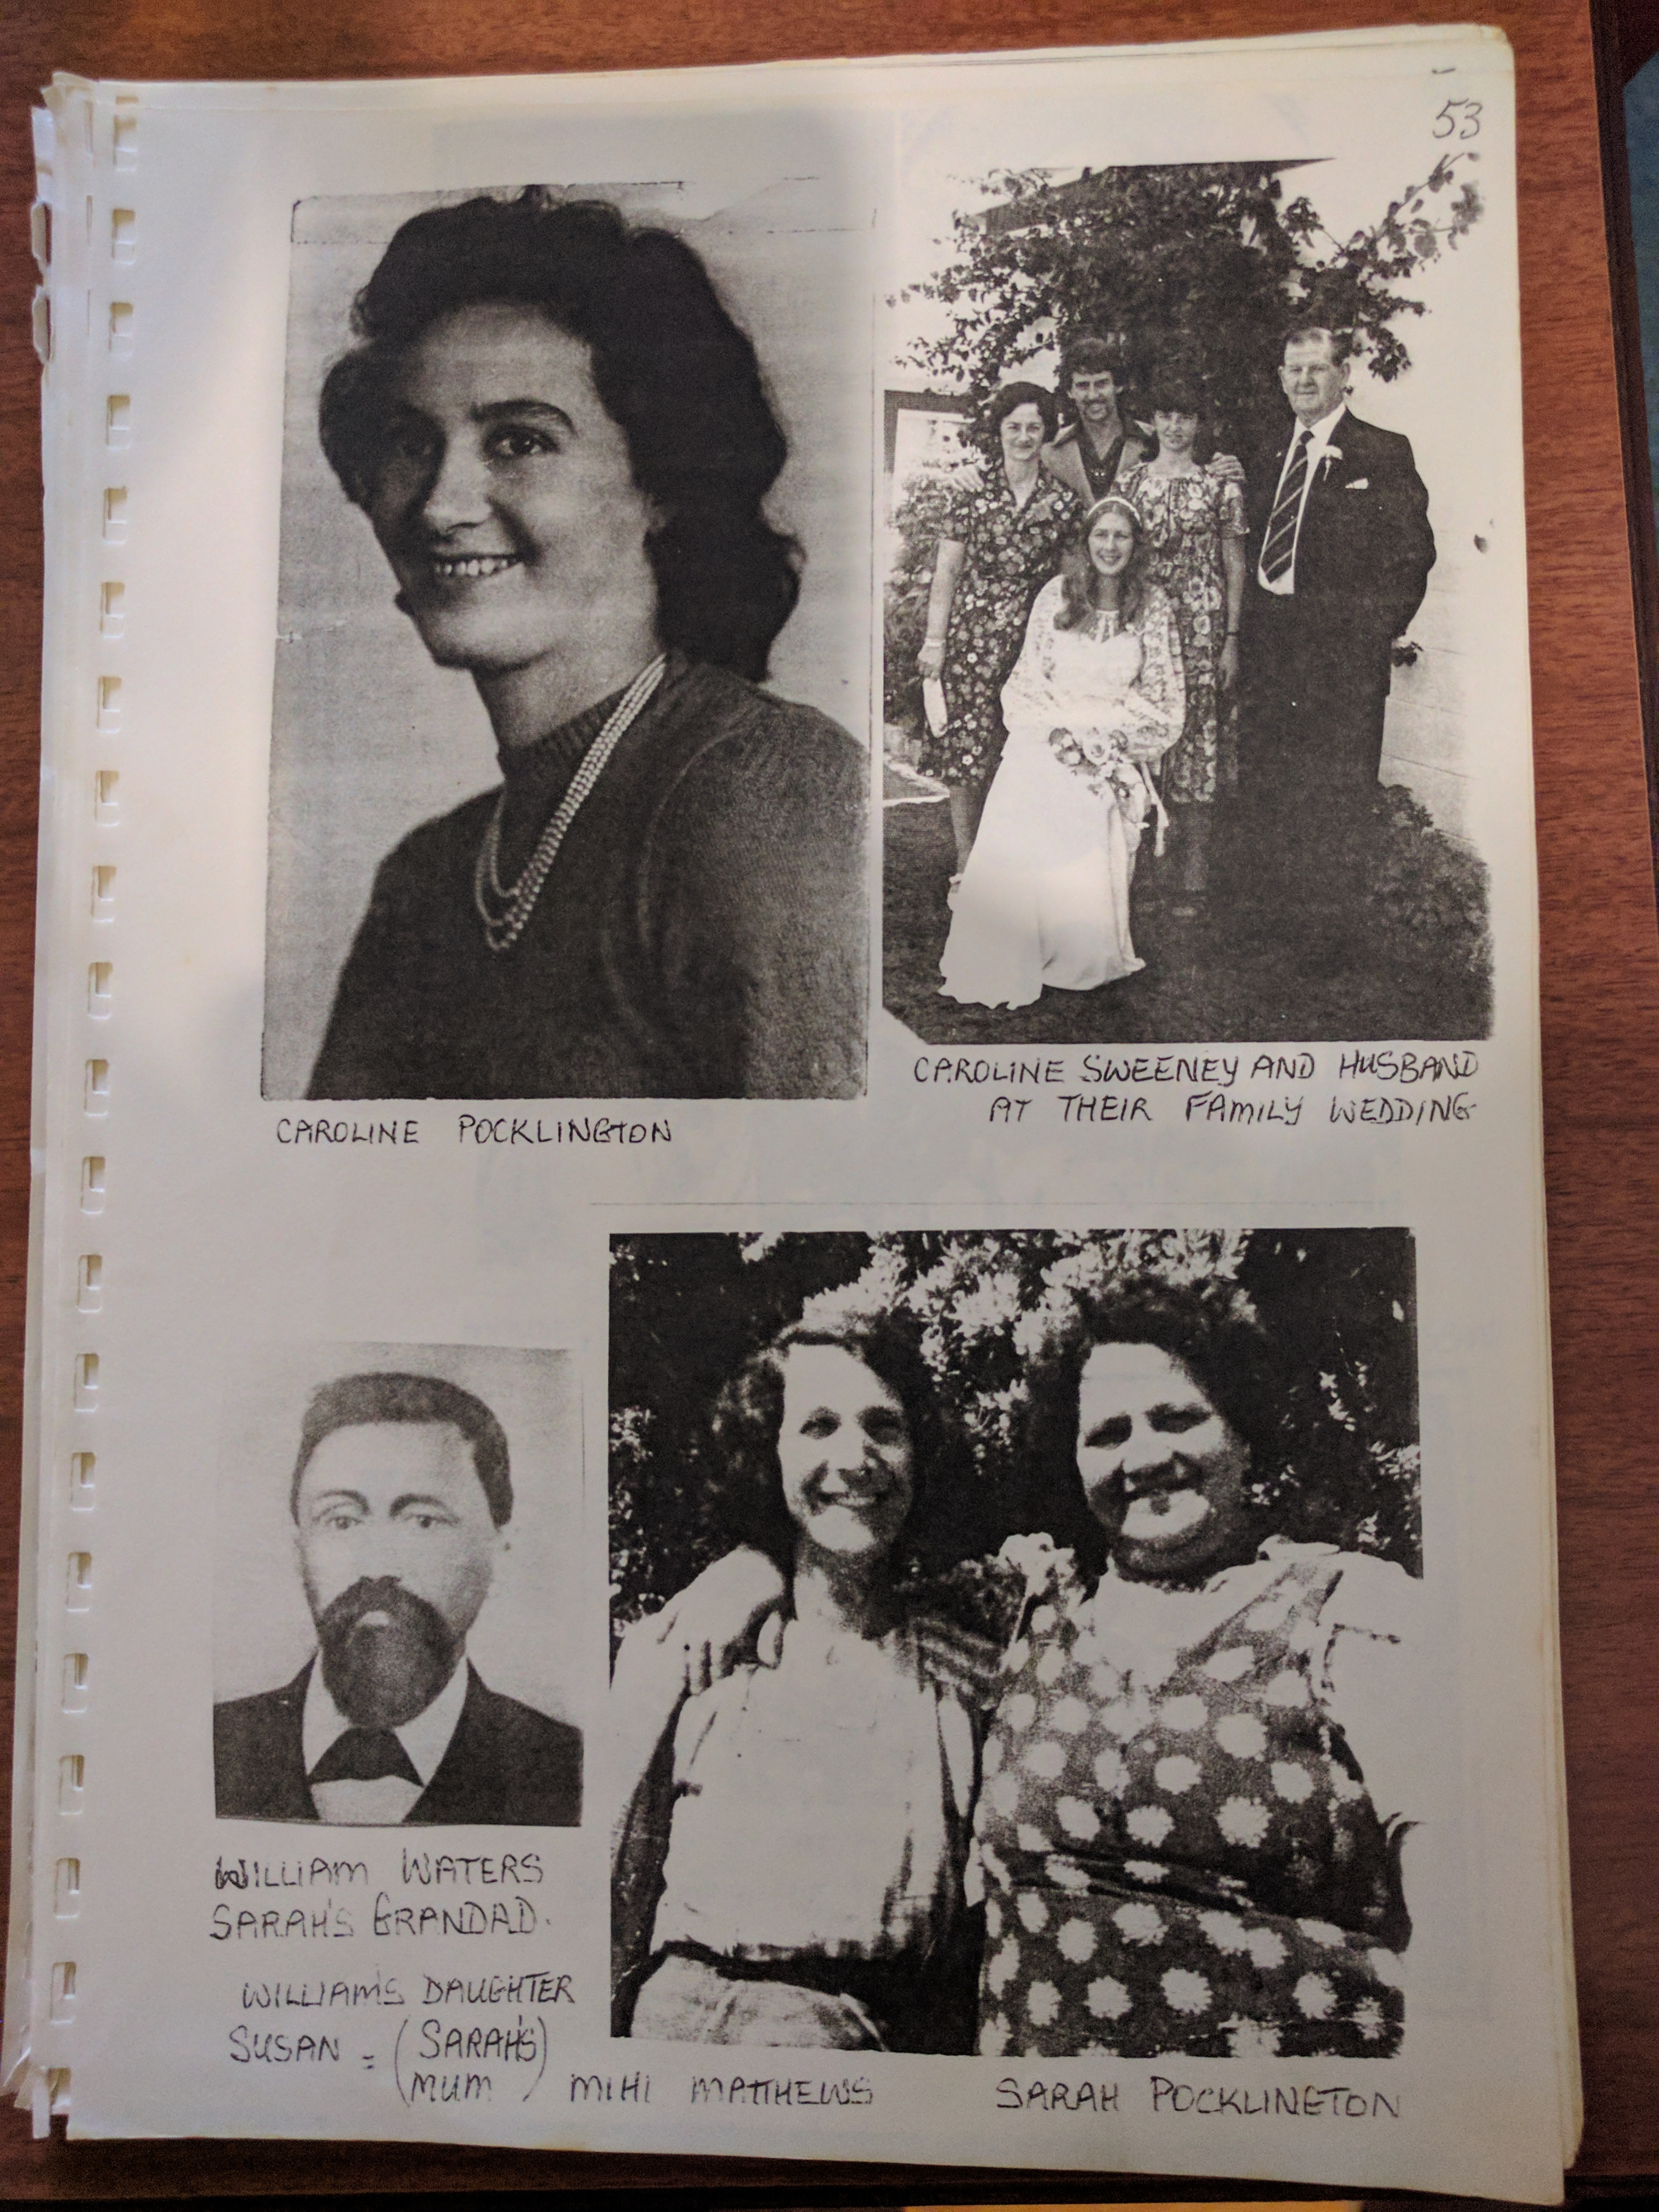 53
CAROLINE POCKLINGTON
CAROLINE SWEENEY AND HUSBAND
AT THEIR FAMILY WEDDING
WILLIAM WATERS
SARAH'S GRANDAD.
WILLIAM'S DAUGHTER
SUSAN = (SARAH'S
MUM)
MIHI MATTHEWS
SARAH POCKLINGTON